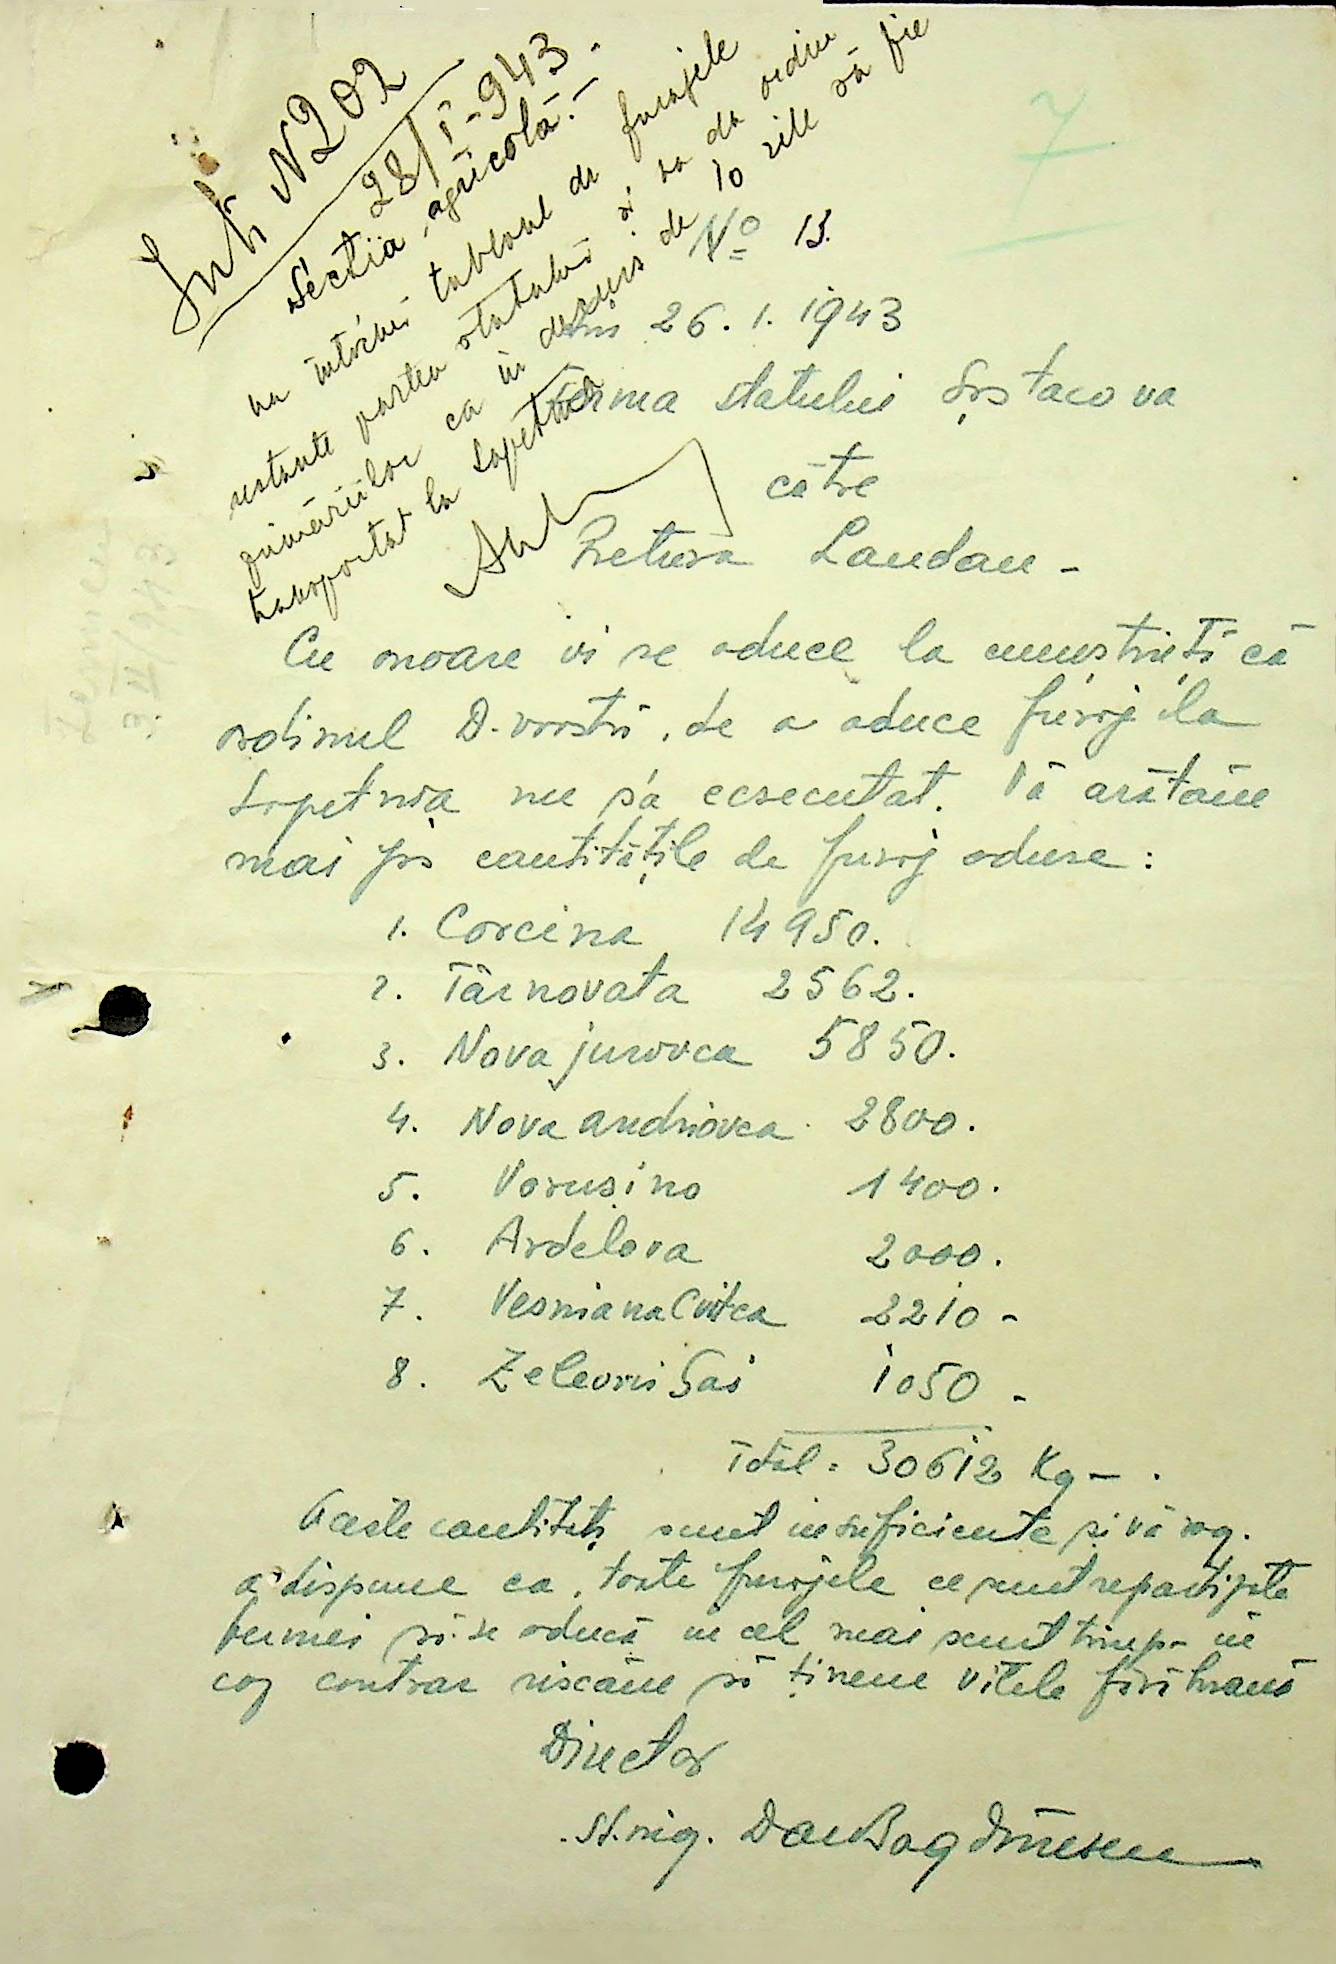 Intr. N 202
28/I-943.
Secția agricolă.-
va întocmi tabloul de furajele
restante partea statului și va da ordin
primăriilor ca în decurs de 10 zile să fie
transportat la Sapetnia
7
No 15.
din 26.1.1943
Ferma statului Șostacova
către
Pretura Landau -
Cu onoare vi se aduce la cunoștință că
ordinul D.voastră, de a aduce furaj la
Sopetnia nu s'a ecsecutat. Vă arătăm
mai jos cantitățile de furaj aduse:
1. Corcina 14950.
2. Tărnovata 2562.
3. Nova jurovca 5850.
4. Nova andriovca 2800.
5. Vorușino 1400.
6. Ardelova 2000.
7. Vesniana Cvitca 2210 -
8. Zeleoni Gai 1050 -
Total = 30612 Kg - .
Aceste cantități sunt insuficiente și vă rog.
a dispune ca, toate furajele ce sunt repartizate
fermei să se aducă în cel mai scurt timp - în
caz contrar riscăm să ținem vitele fără hrană
Director
St. ing. Dan Bogdănescu